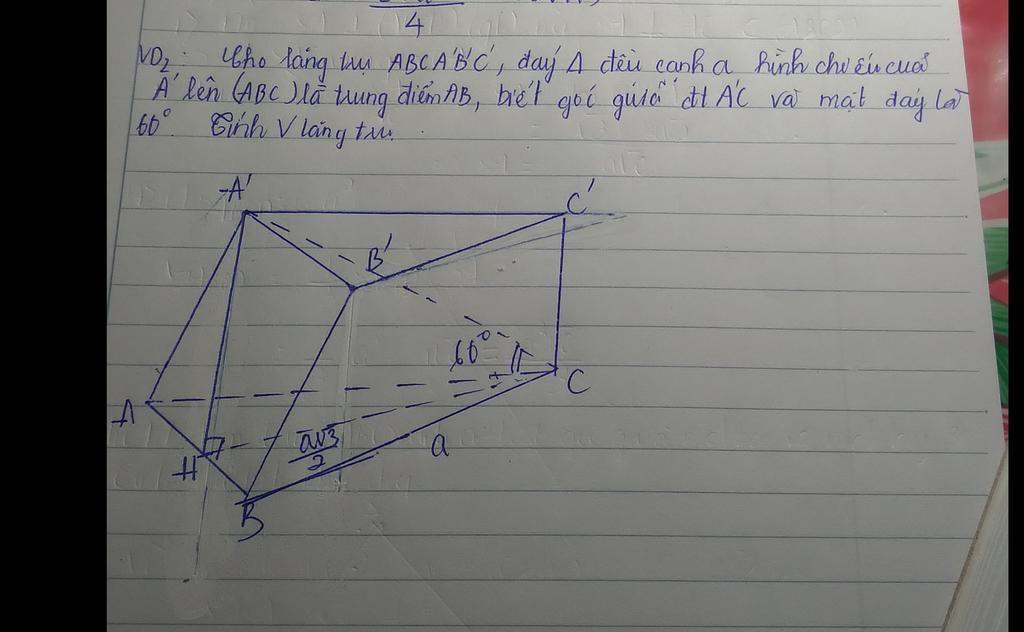 4
VD2: Cho lăng trụ ABCA'B'C', đáy Δ đều cạnh a hình chiếu của
A' lên (ABC) là trung điểm AB, biết góc giữa đt A'C và mặt đáy là
60°. Tính V lăng trụ.
A'
C'
B'
60°
A
C
H
a√3
2
a
B